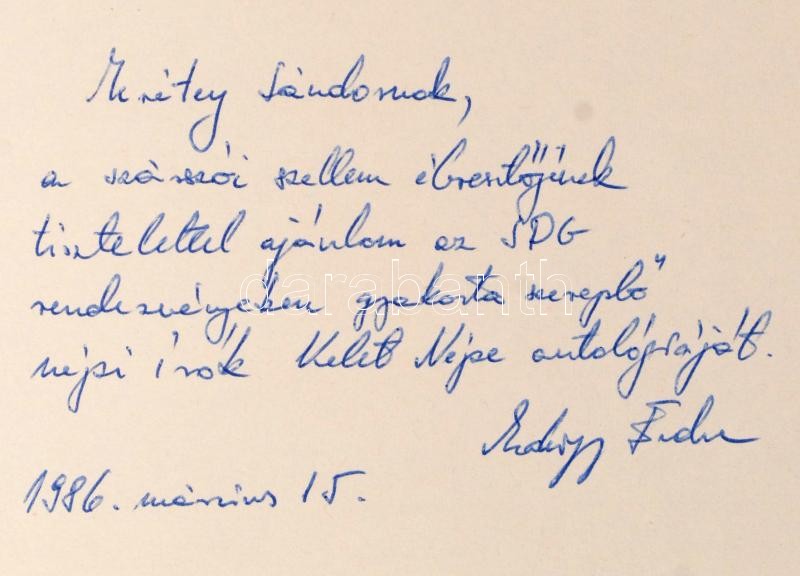 Sándornak,
a szárszói szellem ébresztőjének
tisztelettel ajánlom az SDG
rendezvényeken gyakorta szereplő
népi írók Kelet Népe antológiáját.
1986. március 15.
darabanth